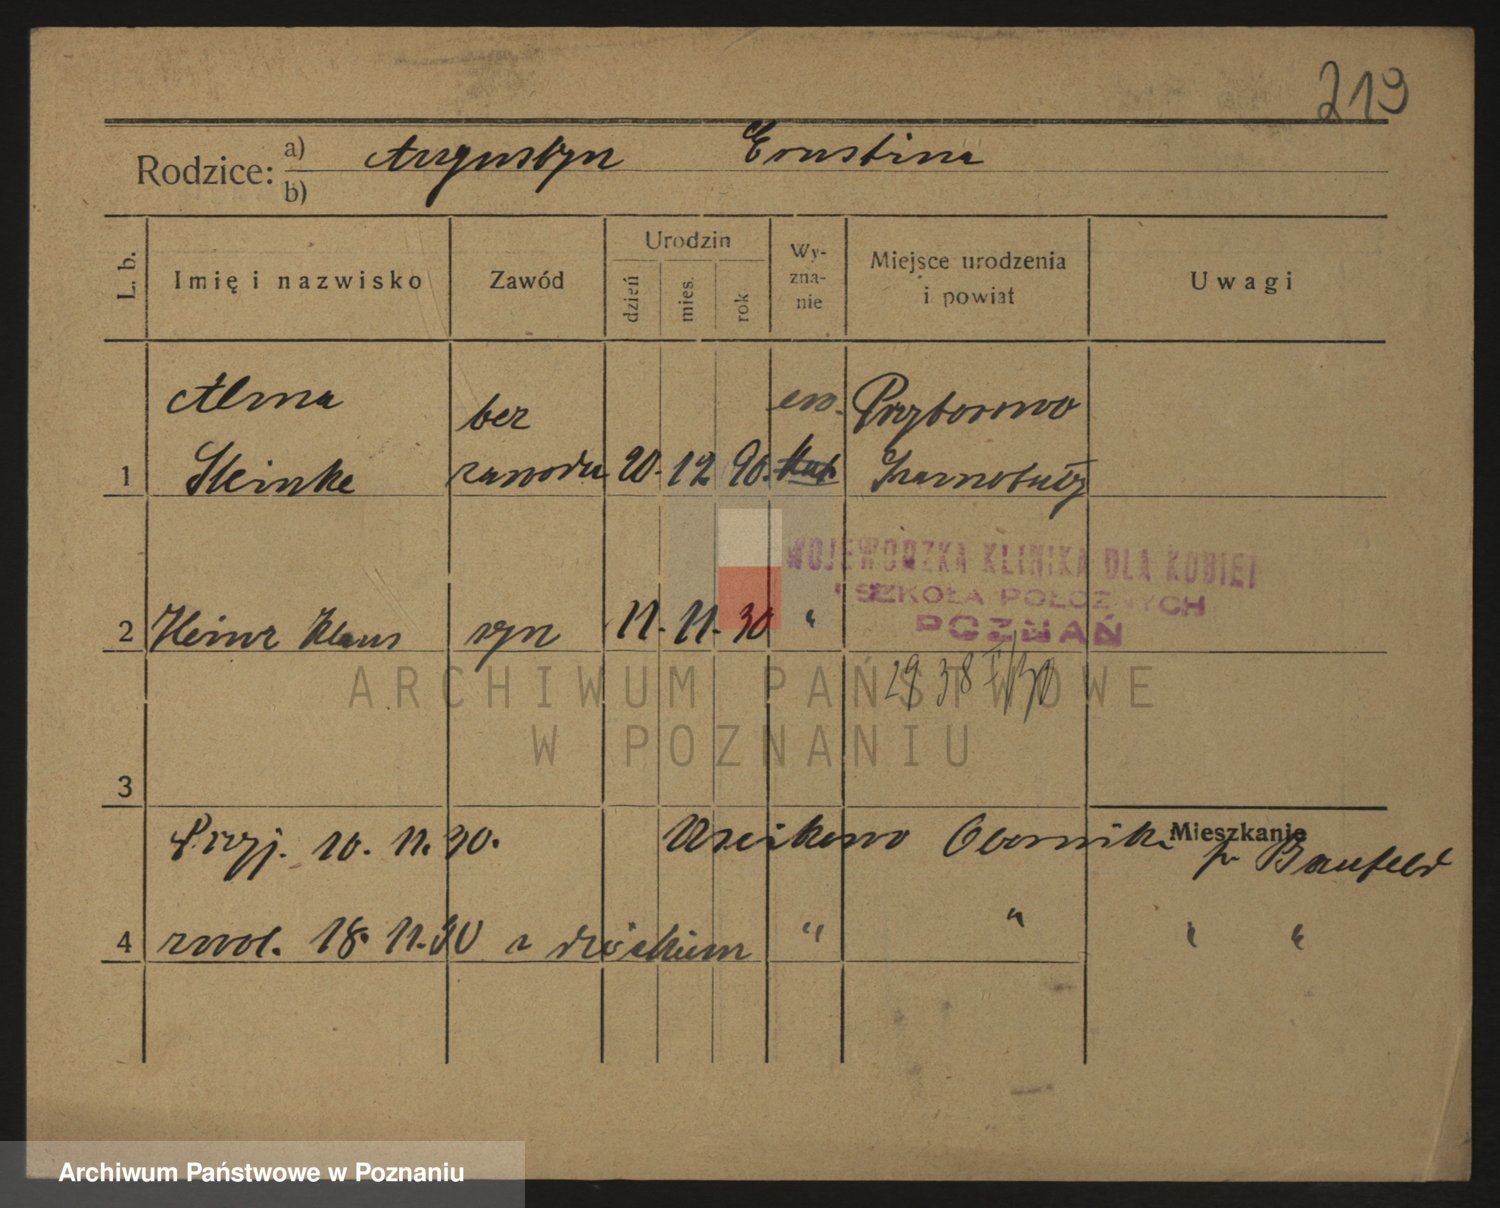 219
Rodzice: a) Augustyn Ernstina
b)
L. b. Imię i nazwisko Zawód Urodzin dzień mies. rok Wy-zna-nie Miejsce urodzenia i powiat Uwagi
Alma bez ew. Przyborowo
1 Steinke zawodu 20. 12 90. kat. Szamotuły
WOJEWÓDZKA KLINIKA DLA KOBIET
I SZKOŁA POŁOŻNYCH
POZNAŃ
2 Heinz Klaus syn 11. 11. 30 "
ARCHIWUM PAŃSTWOWE
W POZNANIU
3
Mieszkanie
Przyj. 10. 11. 30. Uscikowo Oborniki p.
4 zwol. 18. 11. 30 z dzieckiem " " " "
Archiwum Państwowe w Poznaniu